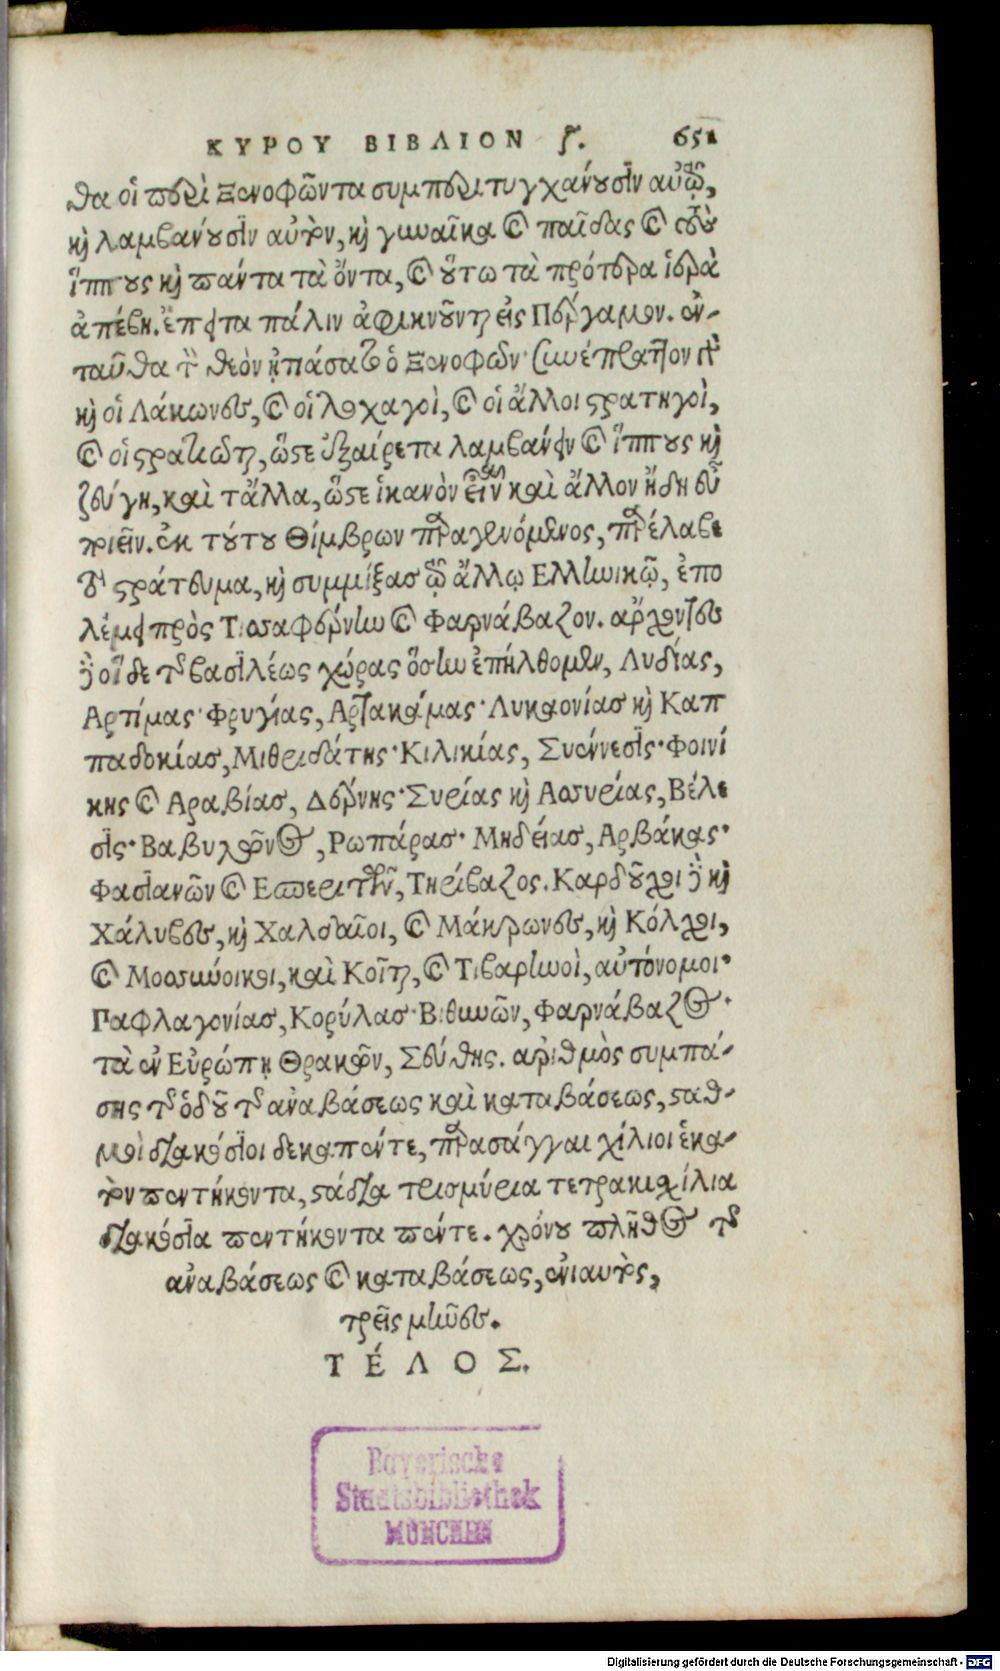 ΚΥΡΟΥ ΒΙΒΛΙΟΝ ζ. 651
θα οἱ περὶ Ξενοφῶντα συμπεριτυγχάνουσιν αὐτῷ,
καὶ λαμβάνουσιν αὐτὸν, καὶ γυναῖκα καὶ παῖδας καὶ τοὺς
ἵππους καὶ πάντα τὰ ὄντα, καὶ οὕτω τὰ πρότερα ἱερὰ
ἀπέβη. ἔπειτα πάλιν ἀφικνοῦνται εἰς Πέργαμον. ἐν-
ταῦθα τὸν θεὸν ἠσπάσατο ὁ Ξενοφῶν· συνέπραττον γὰρ
καὶ οἱ Λάκωνες, καὶ οἱ λοχαγοὶ, καὶ οἱ ἄλλοι στρατηγοὶ,
καὶ οἱ στρατιῶται, ὥστε ἐξαίρετα λαμβάνειν καὶ ἵππους καὶ
ζεύγη, καὶ τἄλλα, ὥστε ἱκανὸν εἶναι καὶ ἄλλον ἤδη εὖ
ποιεῖν. ἐκ τούτου Θίμβρων παραγενόμενος, παρέλαβε
τὸ στράτευμα, καὶ συμμίξας τῷ ἄλλῳ Ελληνικῷ, ἐπο
λέμει πρὸς Τισσαφέρνην καὶ Φαρνάβαζον. ἄρχοντες
δὲ οἵδε τῆς βασιλέως χώρας ὅσην ἐπήλθομεν, Λυδίας,
Αρτίμας· Φρυγίας, Αρτακάμας· Λυκαονίας καὶ Καπ
παδοκίας, Μιθριδάτης· Κιλικίας, Συέννεσις· Φοινί
κης καὶ Αραβίας, Δέρνης· Συρίας καὶ Ασσυρίας, Βέλε
σις· Βαβυλῶνος, Ρωπάρας· Μηδείας, Αρβάκας·
Φασιανῶν καὶ Εσπεριτῶν, Τηρίβαζος. Καρδοῦχοι δὲ καὶ
Χάλυβες, καὶ Χαλδαῖοι, καὶ Μάκρωνες, καὶ Κόλχοι,
καὶ Μοσσύνοικοι, καὶ Κοῖται, καὶ Τιβαρηνοὶ, αὐτόνομοι·
Παφλαγονίας, Κορύλας· Βιθυνῶν, Φαρνάβαζος·
τὰ ἐν Εὐρώπῃ Θρακῶν, Σεύθης. ἀριθμὸς συμπά-
σης τῆς ὁδοῦ τῆς ἀναβάσεως καὶ καταβάσεως, σταθ-
μοὶ διακόσιοι δεκαπέντε, παρασάγγαι χίλιοι ἑκα-
τὸν πεντήκοντα, στάδια τρισμύρια τετρακισχίλια
διακόσια πεντήκοντα πέντε. χρόνου πλῆθος τῆς
ἀναβάσεως καὶ καταβάσεως, ἐνιαυτὸς,
τρεῖς μῆνες.
ΤΈΛΟΣ.
Bayerische
Staatsbibliothek
MÜNCHEN
Digitalisierung gefördert durch die Deutsche Forschungsgemeinschaft - DFG